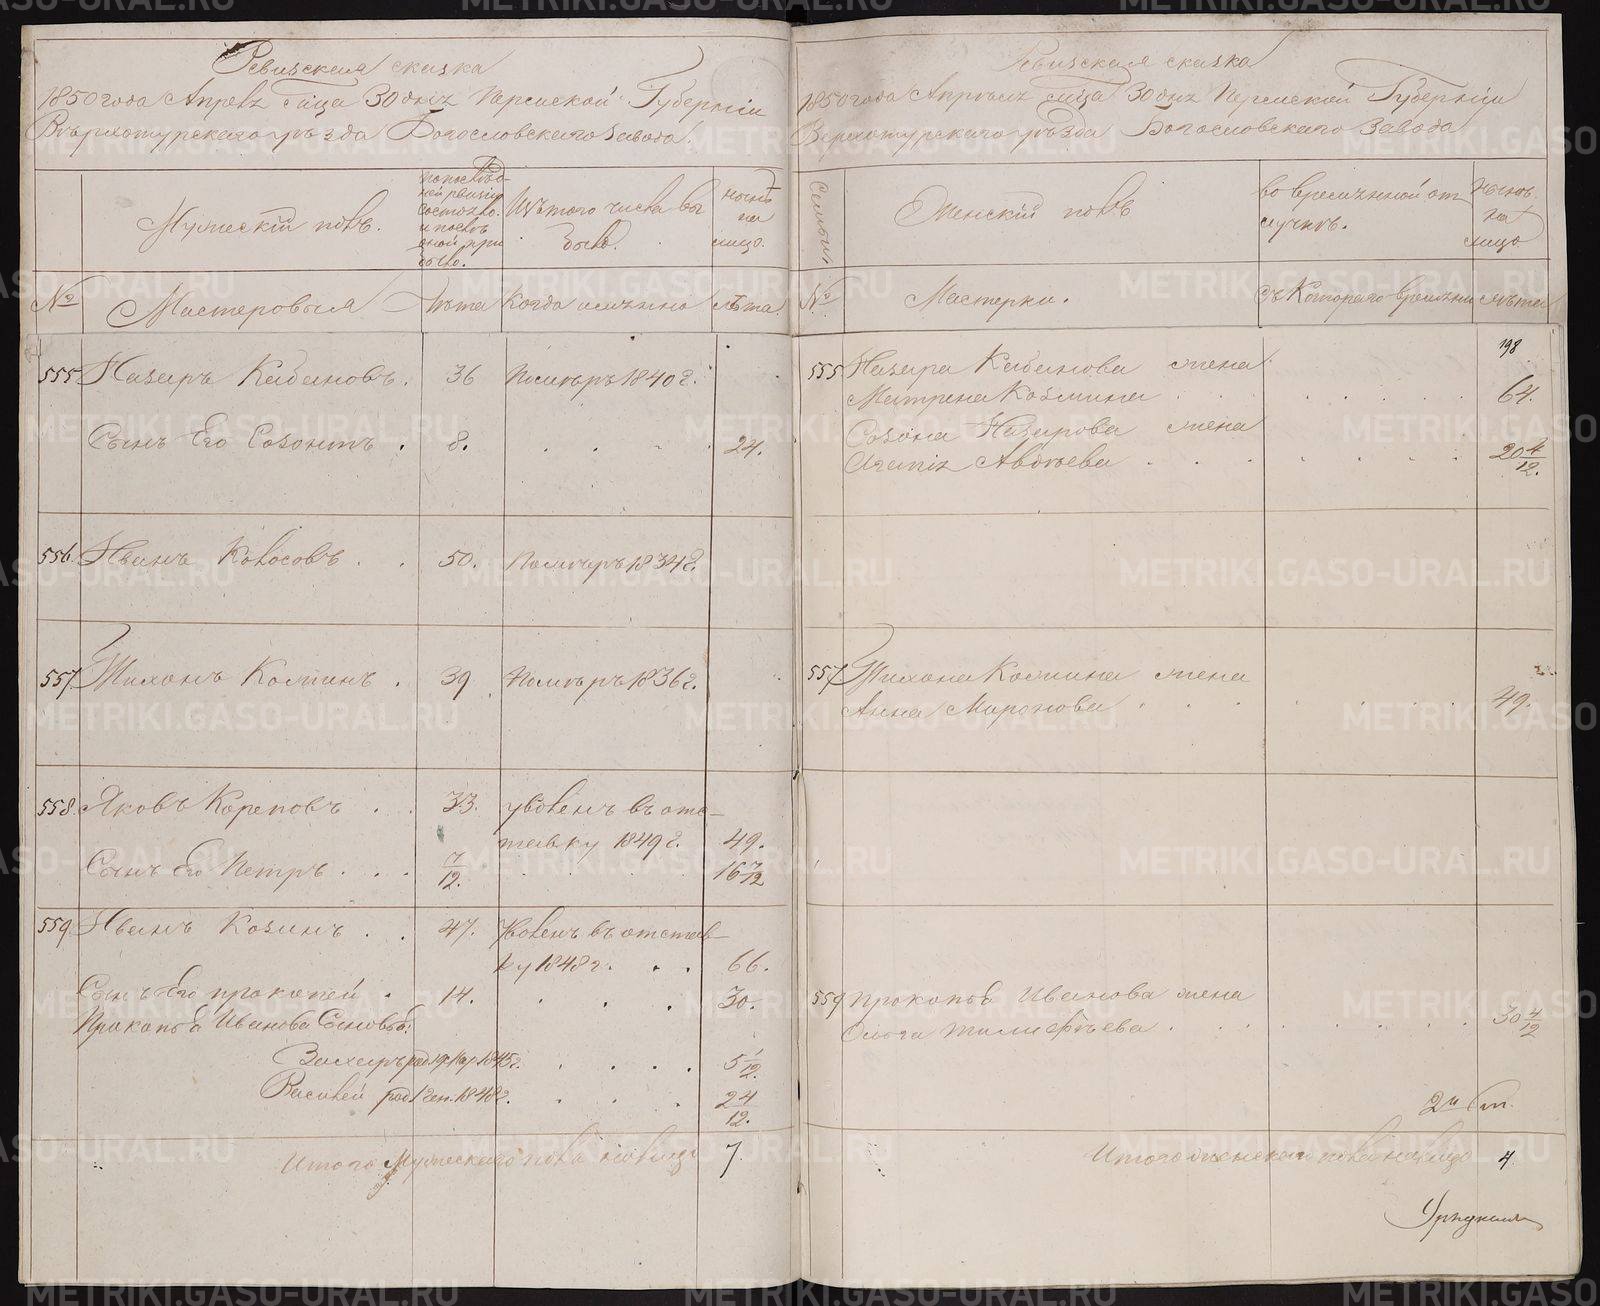 Ревизская сказка
1850 года Апреля м-ца 30 дня Пермской Губернии
Верхотурского уезда Богословского завода.
Мужеский полъ.
по последней ревизии состояло и после оной прибыло.
Изъ того числа выбыло.
ныне на лицо.
№ Мастеровыя Лета Когда именно лета.
555 Назаръ Кабановъ. 36 Померъ 1840 г.
Сынъ Его Созонтъ. 8. 24.
556. Иванъ Колосовъ. 50. Померъ 1834 г.
557 Тихонъ Костинъ. 39 Померъ 1836 г.
558 Яковъ Кореповъ. 33. уволенъ въ отс-
тавку 1849 г. 49.
Сынъ Его Петръ. 7/12. 16 7/12
559 Иванъ Козинъ. 47. Уволенъ въ отстав-
ку 1848 г. 66.
Сынъ Его Прокопей. 14. 30.
Прокопья Иванова Сыновья:
Захаръ род. 19 Мар. 1845 г. 5 1/12.
Василей род. 1 Ген. 1848 г. 2 4/12.
Итого Мужеского пола на лицо 7.
Ревизская сказка
1850 года Апреля м-ца 30 дня Пермской Губернии
Верхотурского уезда Богословского завода
Семьи
Женский полъ
во временной отлучке.
ныне на лицо
№ Мастерки. Съ Которого времени лета
198
555 Назара Кабанова жена
Матрена Козмина 64.
Созона Назарова жена
Агапия Авдеева. 20 4/12.
557 Тихона Костина жена
Анна Миронова 49.
559 Прокопья Иванова жена
Ольга Тимофеева. 30 4/12
Итого женского пола на лицо 4.
METRIKI.GASO-URAL.RU